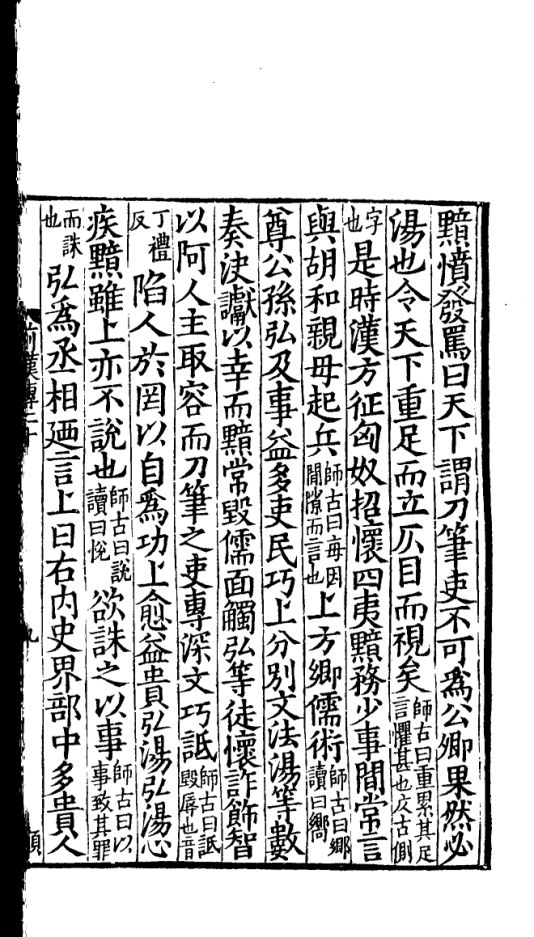 黯憤發罵曰天下謂刀筆吏不可爲公卿果然必
湯也令天下重足而立仄目而視矣師古曰重累其足言懼甚也仄古側
字也是時漢方征匈奴招懷四夷黯務少事間常言
與胡和親毋起兵師古曰毎因間隙而言也上方鄉儒術師古曰鄉讀曰嚮
尊公孫弘及事益多吏民巧上分別文法湯等數
奏決讞以幸而黯常毀儒面觸弘等徒懷詐飾智
以阿人主取容而刀筆之吏專深文巧詆師古曰詆毀辱也音
丁禮反陷人於罔以自爲功上愈益貴弘湯弘湯心
疾黯雖上亦不說也師古曰說讀曰悅欲誅之以事師古曰以事致其罪
而誅也弘爲丞相廼言上曰右內史界部中多貴人
前漢傳二十
九